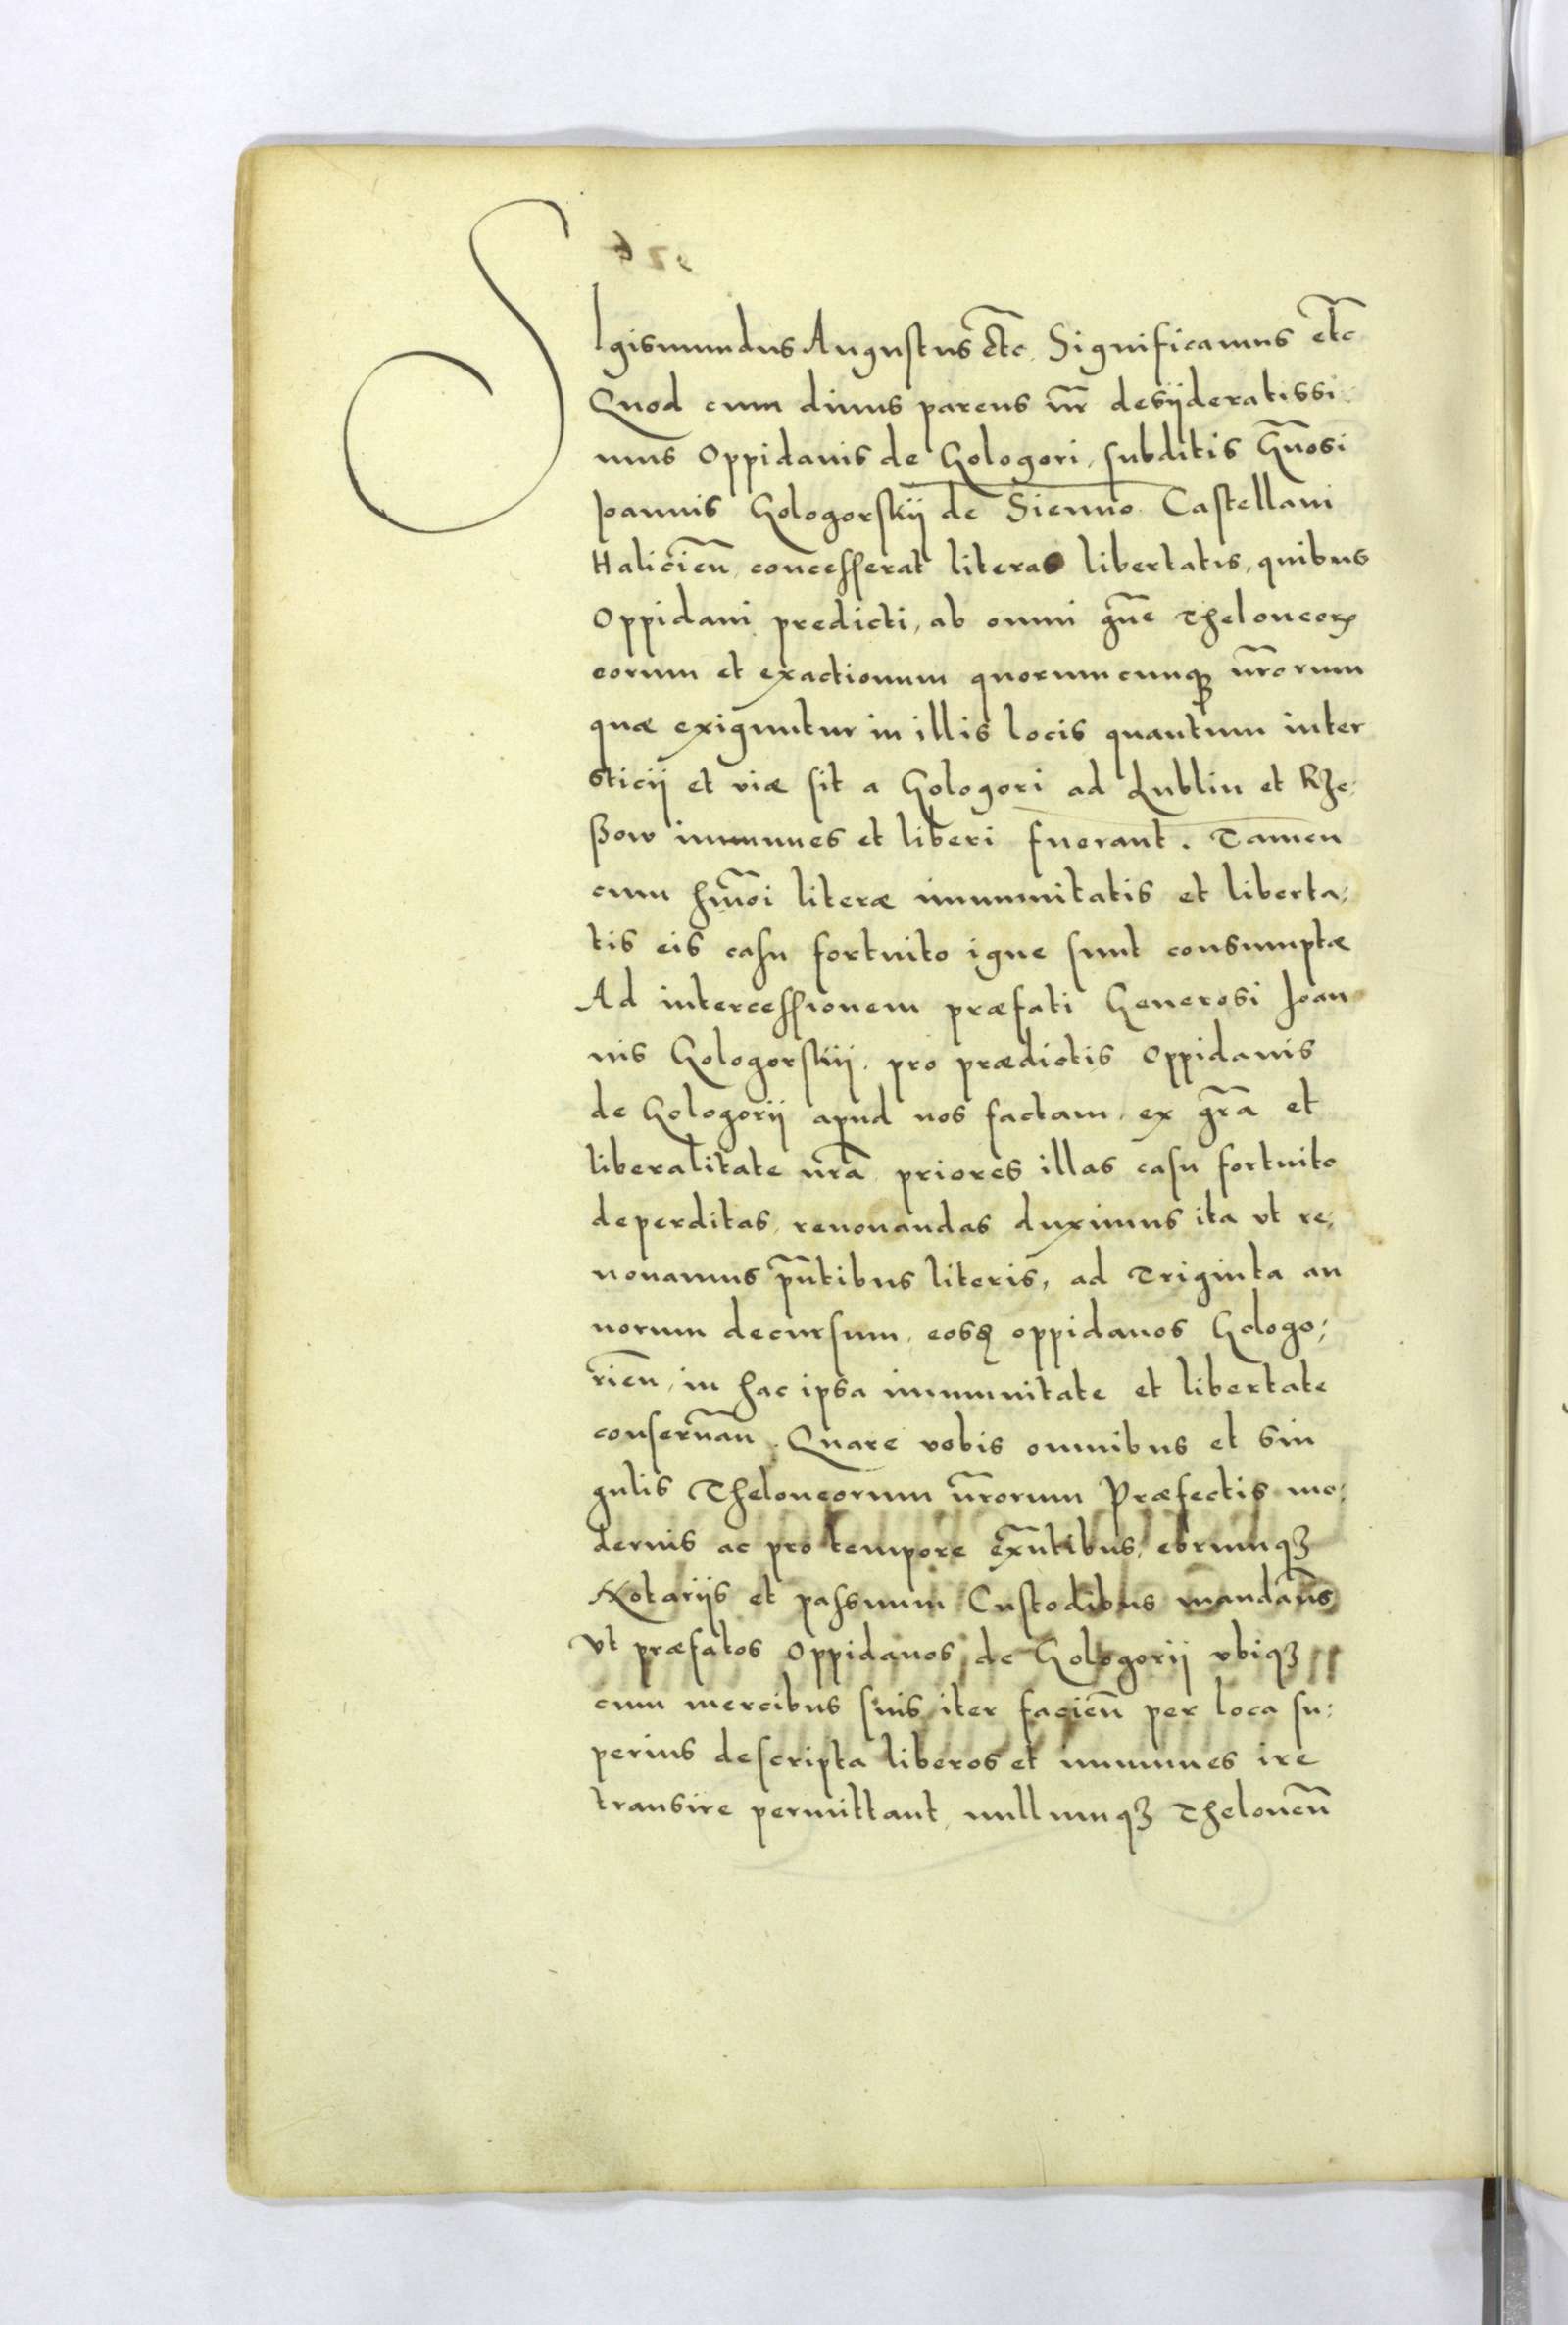 SIgismundus Augustus etc. Significamus etc
Quod cum diuus parens nr̃ desyderatissi-
mus Oppidanis de Gologori, subditis Gñosi
Joannis Gologorskij de Sienno Castellani
Halicieñ, concesserat literas libertatis, quibus
Oppidani predicti, ab omni gñe Theloneoꝝ
eorum et exactionum quorumcunqꝫ nr̃orum
quæ exiguntur in illis locis quantum inter
sticij et viæ sit a Gologori ad Lublin et Rze-
ßow immunes et liberi fuerant. Tamen
cum hm̃oi literæ immunitatis et liberta-
tis eis casu fortuito igne sunt consumptæ
Ad intercessionem præfati Generosi Joan
nis Gologorskij. pro prædictis Oppidanis
de Gologorij apud nos factam, ex gr̃a et
liberalitate nr̃a priores illas casu fortuito
deperditas, renouandas duximus ita vt re-
nouamus pñtibus literis, ad Triginta an
norum decursum, eosqꝫ oppidanos Gologo-
rieñ, in hac ipsa immunitate et libertate
conseruañ. Quare vobis omnibus et sin
gulis Theloneorum nr̃orum Præfectis mo-
dernis ac pro tempore exñtibus, eorumqꝫ
Notarijs et passuum Custodibus mandam̃us
Vt præfatos Oppidanos de Gologorij vbiqꝫ
cum mercibus suis iter facieñ per loca su-
perius descripta liberos et immunes ire
transire permittant, nullumqꝫ Theloneũ